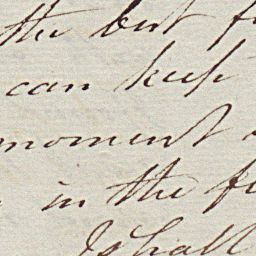 the best f
can keep
moment
in the fi
I shall